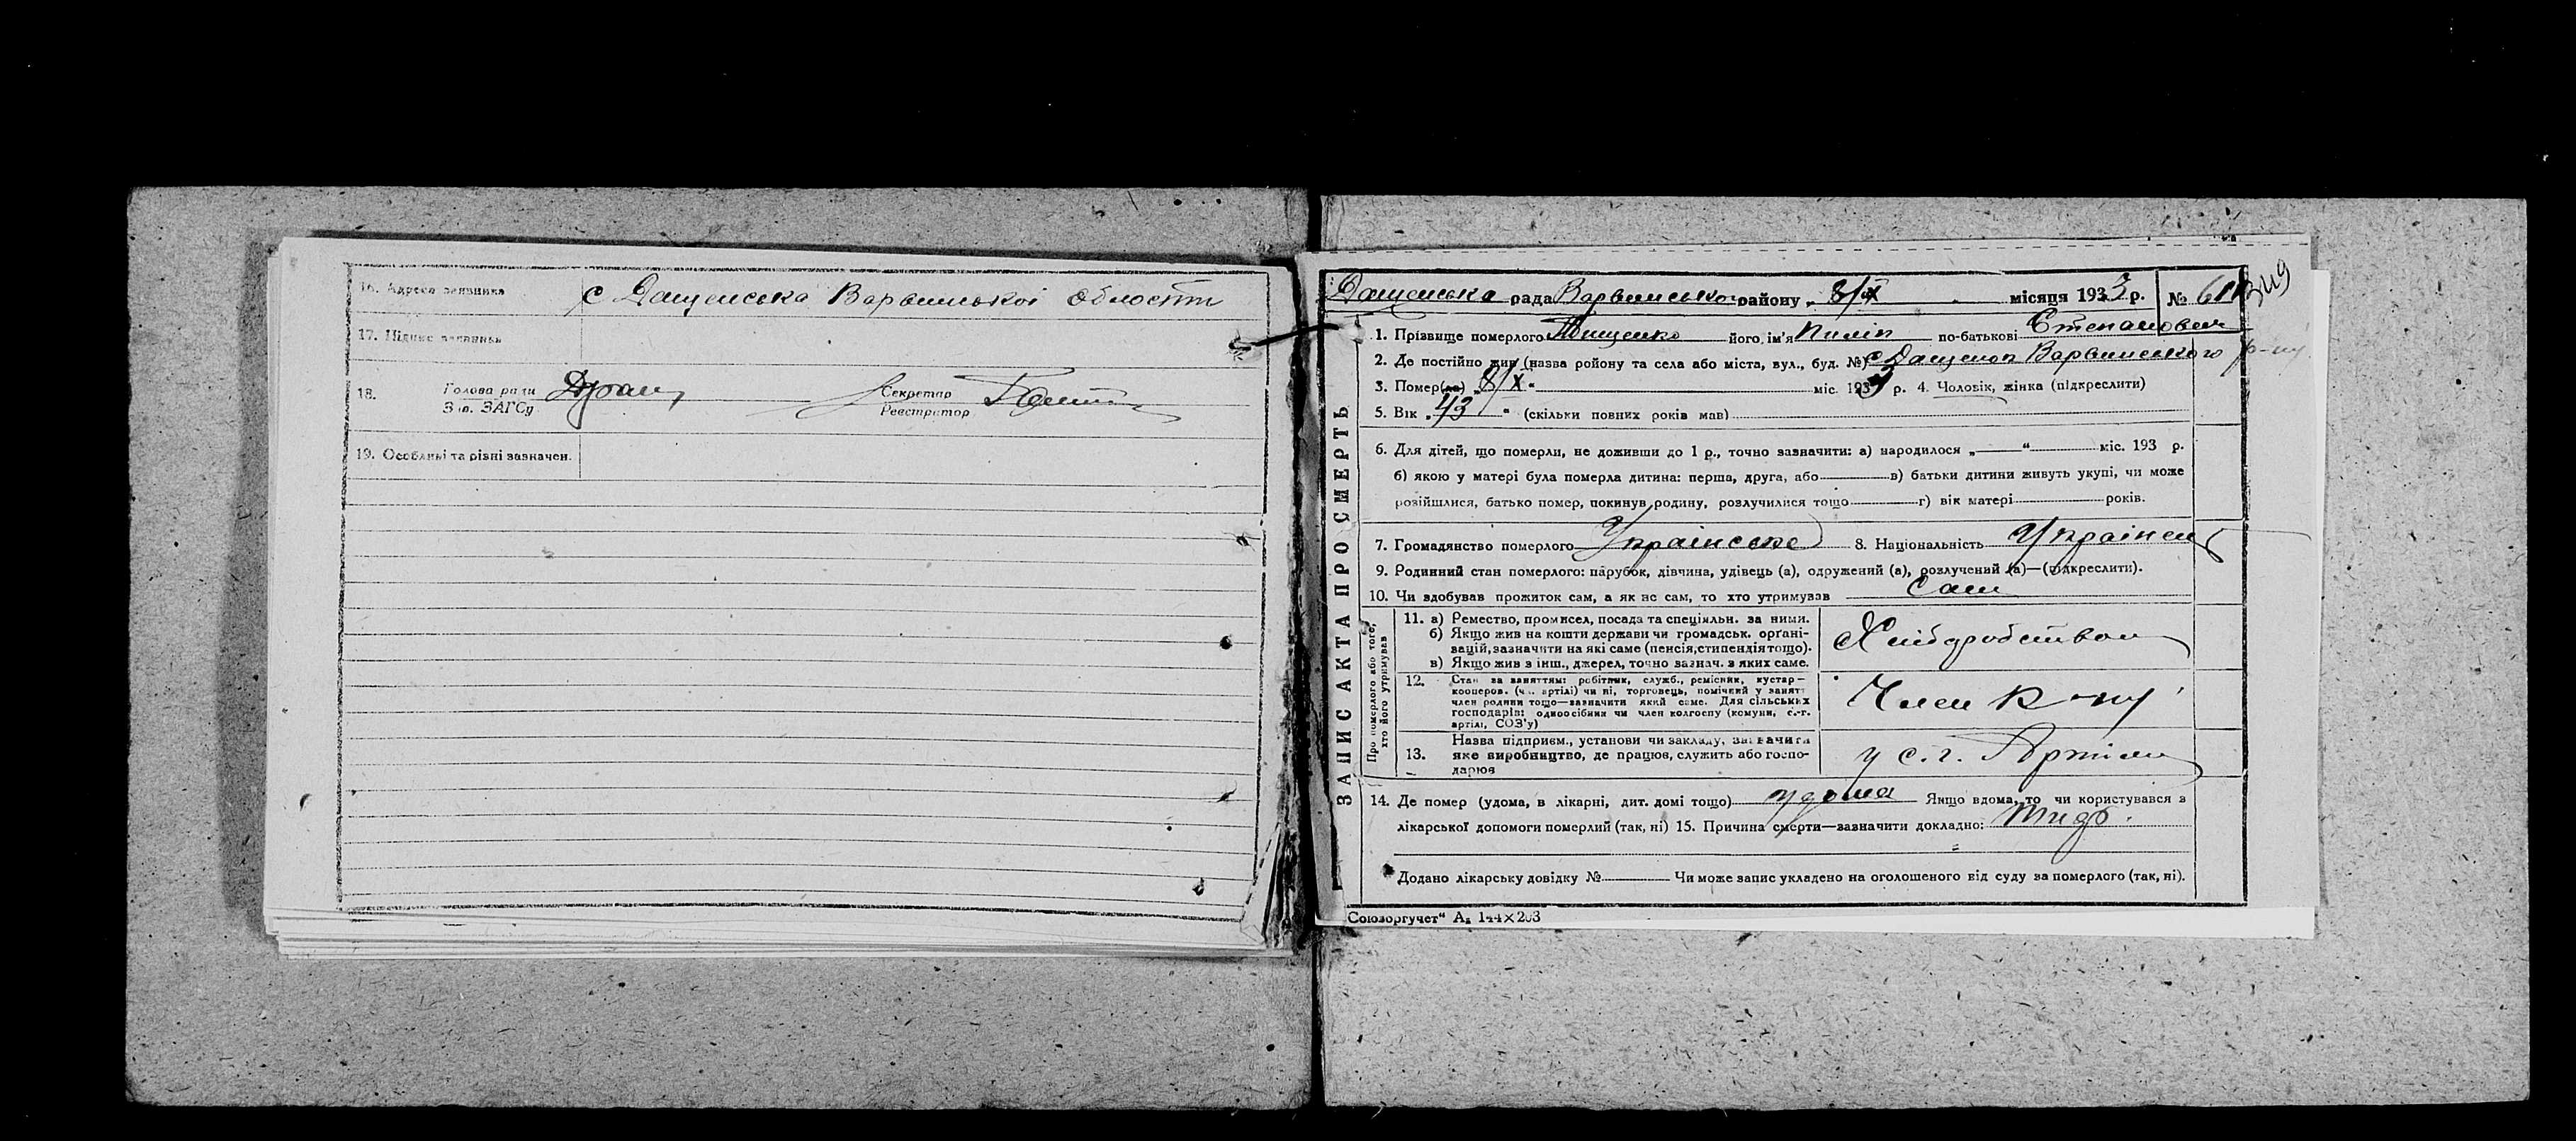 16. Адреса заявника с Дащенська Варвинської області
17. Підпис заявника
18. Голова ради Секретар
Зав. ЗАГСу Реєстратор
19. Особливі та різні зазначен.
Дащенська рада Варвинського району „ 8/X місяця 1933 р. № 349
1. Прізвище померлого його ім'я Пиліп по-батькові Степанович
2. Де постійно жив (назва району та села або міста, вул., буд. №) с Дащенка Варвинського р-ну
3. Помер(ла) „ 8/X “ міс. 1933 р. 4. Чоловік, жінка (підкреслити)
5. Вік „ 43 “ (скільки повних років мав)
6. Для дітей, що померли, не доживши до 1 р., точно зазначити: а) народилося „ “ міс. 193 р.
б) якою у матері була померла дитина: перша, друга, або в) батьки дитини живуть укупі, чи може
розійшлися, батько помер, покинув родину, розлучилися тощо г) вік матері років.
7. Громадянство померлого Українське 8. Національність Українец
9. Родинний стан померлого: парубок, дівчина, удівець (а), одружений (а), розлучений (а)—(підкреслити).
10. Чи здобував прожиток сам, а як не сам, то хто утримував Сам
ЗАПИС АКТА ПРО СМЕРТЬ
Про померлого або того,
хто його утримував
11. а) Ремество, промисел, посада та спеціяльн. за ними.
б) Якщо жив на кошти держави чи громадськ. органі-
зацій, зазначити на які саме (пенсія, стипендія тощо).
в) Якщо жив з інш., джерел, точно зазнач. з яких саме.
Хліборобством
12. Стан за заняттям: робітник, служб., ремісник, кустар—
кооперов. (чл. артілі) чи ні, торговець, помічний у занятт
член родини тощо—зазначити який саме. Для сільських
господарів: одноосібник чи член колгоспу (комуни, с.-г.
артілі, СОЗ'у)
Член к-пу
13. Назва підприєм., установи чи закладу, зазначити
яке виробництво, де працює, служить або госпо-
дарює
у с.г. Артілі
14. Де помер (удома, в лікарні, дит. домі тощо) удома Якщо вдома, то чи користувався з
лікарської допомоги померлий (так, ні) 15. Причина смерти—зазначити докладно:
Додано лікарську довідку № Чи може запис укладено на оголошеного від суду за померлого (так, ні).
Союзоргучет“ А₅ 144×203